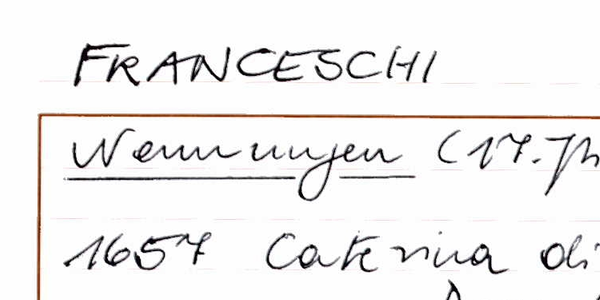 FRANCESCHI
Nennungen (17. Jh
1657 Caterina di